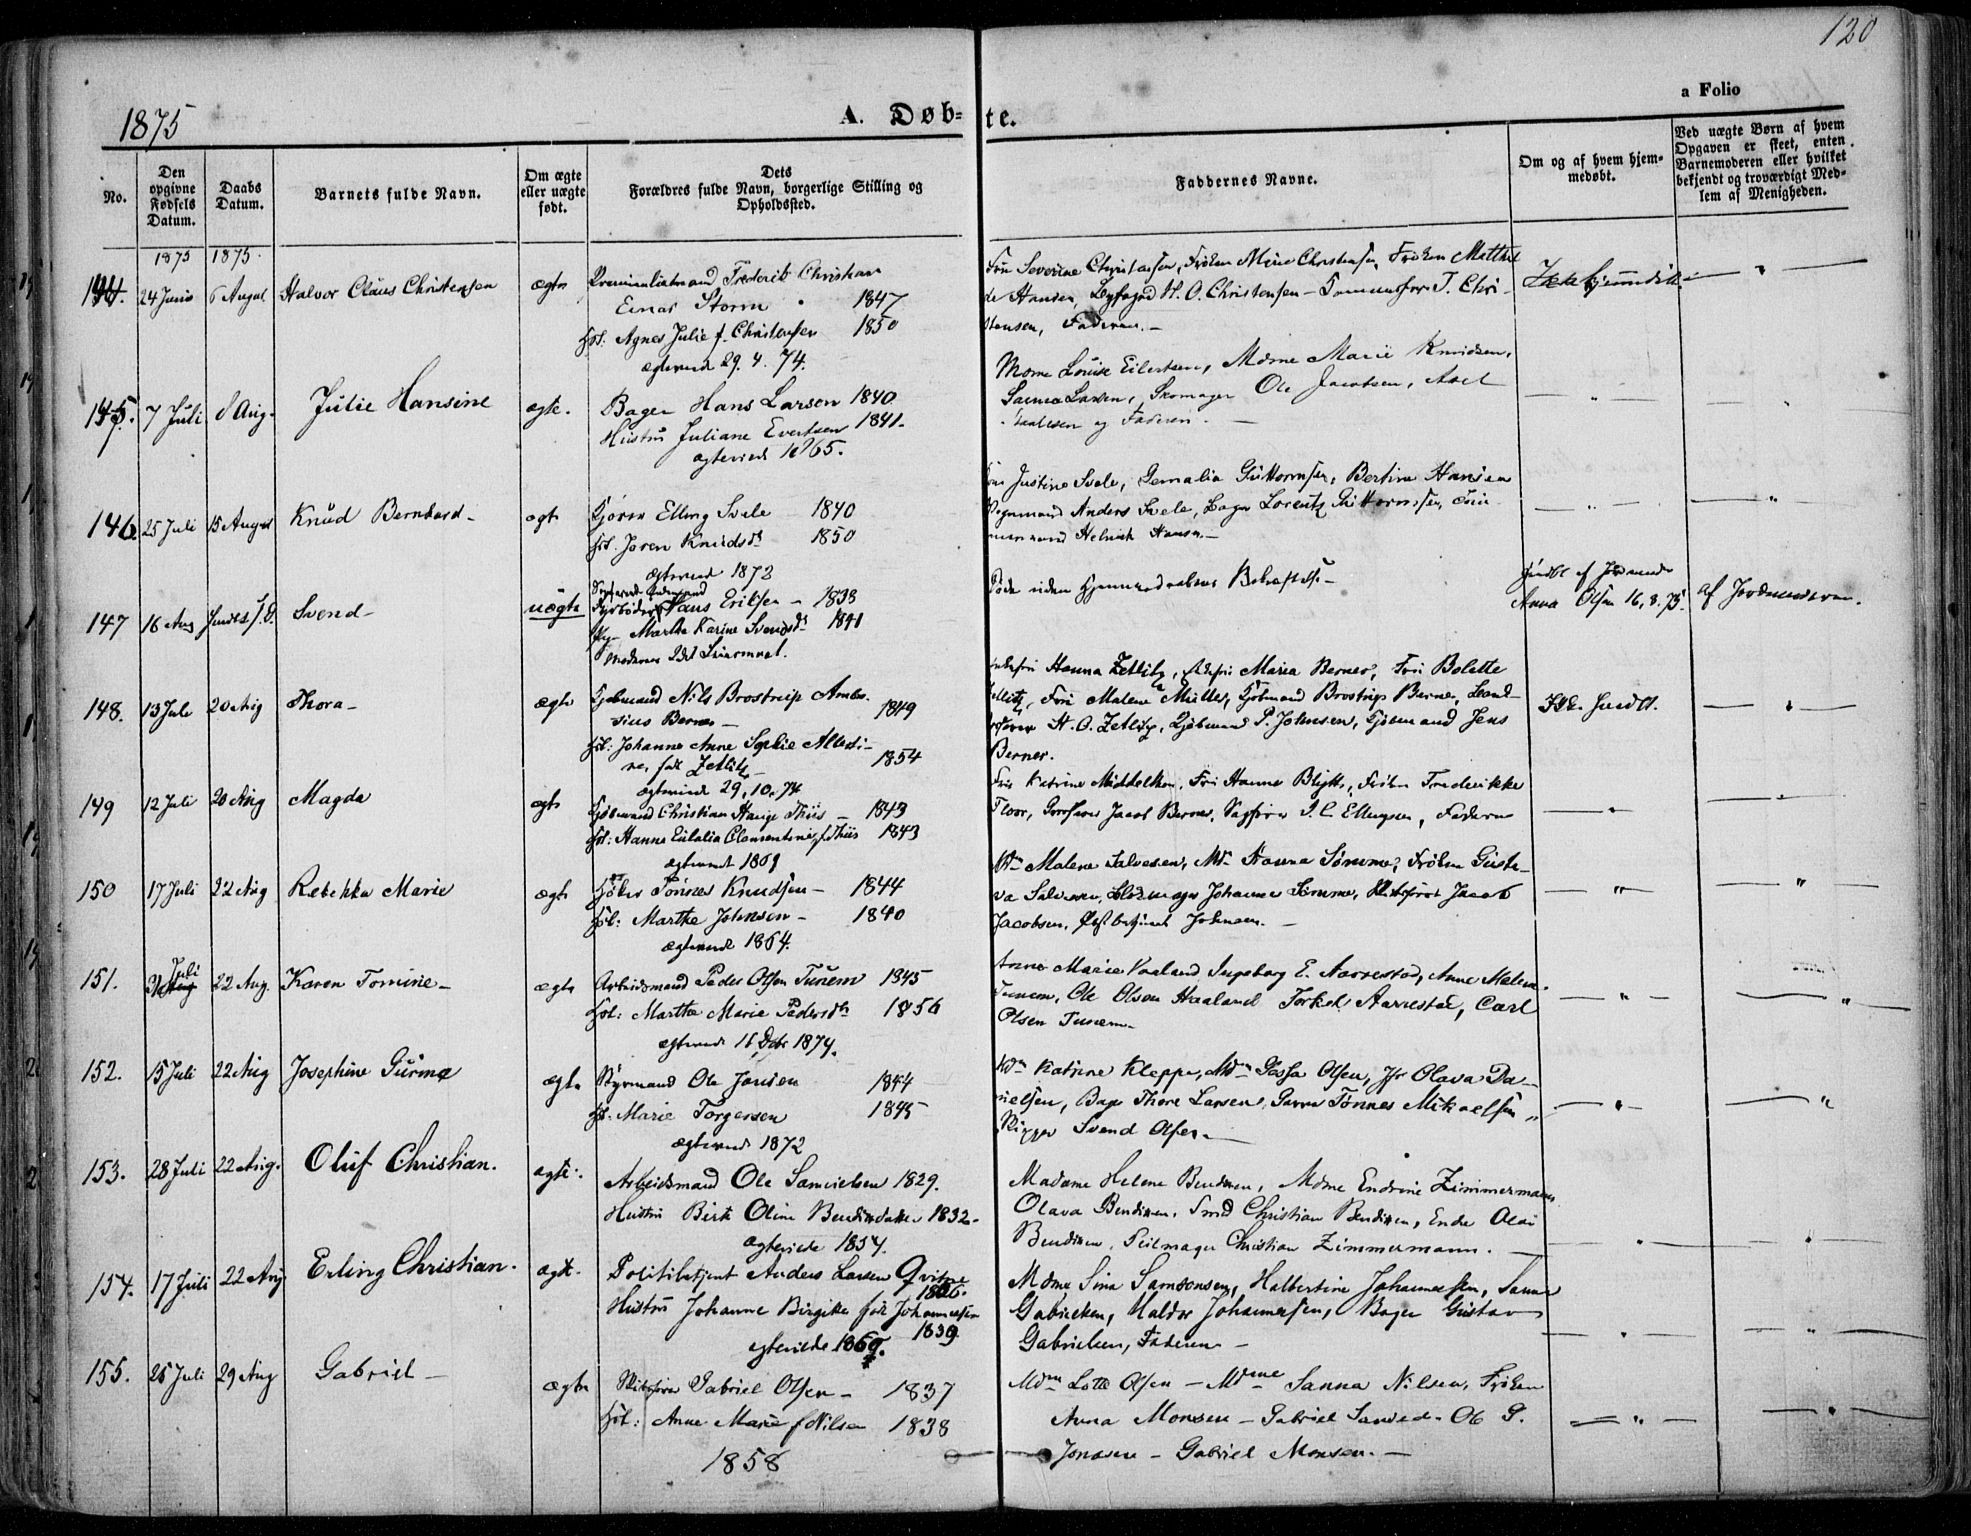 120
a Folio
1875
A. Døb-
te.
No.
Den
opgivne
Fødsels
Datum.
Daabs
Datum.
Barnets fulde Navn.
Om ægte
eller uægte
født.
Dets
Forældres fulde Navn, borgerlige Stilling og
Opholdssted.
Faddernes Navne.
Om og af hvem hjem-
medøbt.
Ved uægte Børn af hvem
Opgaven er skeet, enten
Barnemoderen eller hvilket
bekjendt og troværdigt Med-
lem af Menigheden.
1875 1875.
144. 24 Juni 6 August Halvor Claus Christensen ægte Frederik Christian
Einar Storm 1847
Agnes Julie f. Christensen 1850
ægteviede 29. 4. 74.
Severine Christensen, Frøken Mine Christensen, Frøken Mathil
de Hansen, Byfoged H. O. Christensen T. Chri-
stensen, Faderen.
145. 7 Juli 8 Aug. Julie Hansine ægte. Bager Hans Larsen 1840
Hustru Juliane Evertsen 1841.
ægteviede 1865.
Mdme Louise Eilertsen, Mdme Marie Knudsen,
Larsen, Skomager Ole Jacobsen, Axel
og Faderen.
146. 25 Juli 15 August Knud Bernhard ægte Elling Svele 1840
Joren Knudsdt 1850
ægteviede 1872
Justine Svele, Guttormsen, Bertine Hansen
Anders Svele, Bager Lorentz Guttormsen,
Helmik Hansen
147 16 Aug Svend uægte
Fyrbøder Hans Eriksen 1838
Pige Marthe Karine Svendsdt 1841
Moderens 2det Leiermaal.
Døde inden Hjemmedaabens Bekræftelse
Jordmoder
Anna Olsen 16. 8. 75.
af Jordmoderen.
148. 13 Juli 20 Aug Thora ægte Kjøbmand Nils Brostrup Ambro-
sius Berner 1849
Johanne Anne Sophie Alberti-
ne, født Zetlitz 1854
ægteviede 29. 10. 74
Hanna Zetlitz, Maria Berner, Fru Bolette
Zetlitz, Fru Malene Müller, Kjøbmand Brostrup Berner,
H. O. Zetlitz, Kjøbmand P. Johnsen, Kjøbmand Jens
Berner.
149 12 Juli 20 Aug Magda ægte Kjøbmand Christian Hauge Thiis 1843
Hanne Eulalia Clementine f. Thiis 1843
ægteviede 1869
Fru Katrine Middelthon, Fru Hanne Blytt, Frøken Frederikke
Floor, Jacob Berner, Sagfører I. C. Ellingsen, Faderen
150 17 Juli 22 Aug Rebekka Marie ægte Tønnes Knudsen 1844
Marthe Johnsen 1840
ægteviede 1864.
Mdm Malene Salvesen, Mdm Hanna Sømme, Frøken Gusta-
va Salvesen, Johannes Sømme, Skibsfører Jacob
Jacobsen, Johnsen.
151. 31 Juli 22 Aug. Karen Tomine ægte Arbeidsmand Peder Olsen Tunem 1845
Marthe Marie Pedersdt 1856
ægteviede 16 Dcbr 1874.
Anne Marie Haaland Ingeborg E. Aarrestad, Anne Malene
Tunem, Ole Olsen Haaland Torkel Aarrestad, Carl
Olsen Tunem
152. 15 Juli 22 Aug Josephine Gurine ægte Styrmand Ole Jonsen 1844
Marie Torgersen 1845
ægteviede 1872
Mdm Katrine Kleppe, Mdm Olsen, Jfr Olava Da-
nielsen, Bager Thore Larsen, Garver Tønnes Mikaelsen,
Rigger Svend Olsen
153. 28 Juli 22 Aug. Oluf Christian. ægte. Arbeidsmand Ole Samuelsen 1829.
Hustru Birte Oline Bendiksdatter 1832.
ægteviede 1854.
Madame Helene Bendixen, Mdme Endrine Zimmermann
Olava Bendixen, Smed Christian Bendixen, Endre Olai
Bendixen, Seilmager Christian Zimmermann.
154. 17 Juli 22 Aug Erling Christian. ægte. Politibetjent Anders Larsen Qvitne
1836.
Hustru Johanne Birgitte født Johannessen
1839
ægteviede 1869.
Mdme Sina Samsonsen, Halbertine Johannessen, Sanne
Gabrielsen, Haldor Johannessen, Bager Gustav
Gabrielsen, Faderen
155. 25 Juli 29 Aug Gabriel ægte Skibsfører Gabriel Olsen 1837
Anne Marie f. Nilsen 1838
1858
Mdm Lotte Olsen Mdme Sanna Nilsen, Frøken
Anna Monsen Gabriel Sanved Ole G.
Jonasen Gabriel Monsen.